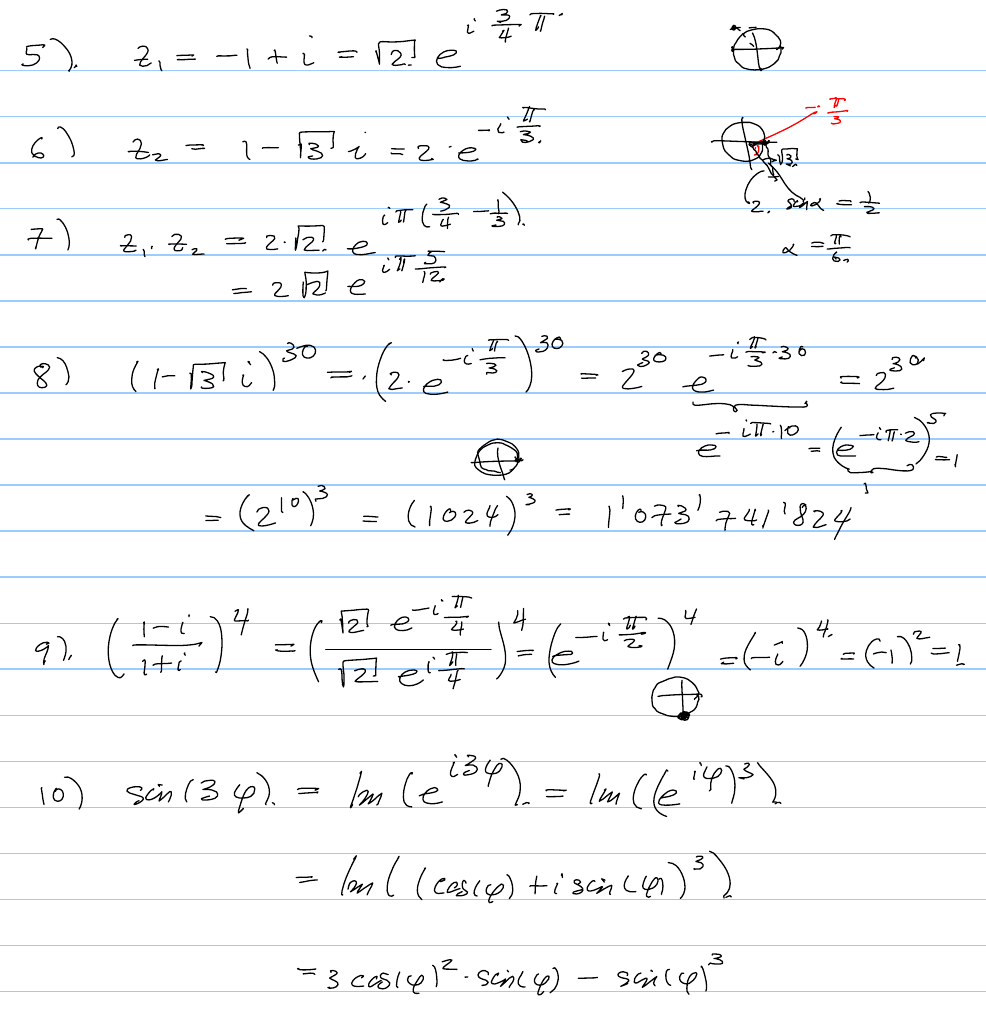 5). z₁ = -1 + i = √2 e^{i 3/4 π}
6) z₂ = 1 - √3 i = 2 · e^{-i π/3}
-π/3
√3
2. sin α = 1/2
α = π/6
7) z₁ · z₂ = 2 · √2 e^{iπ(3/4 - 1/3)}
= 2 √2 e^{iπ 5/12}
8) (1 - √3 i)^{30} = (2 · e^{-i π/3})^{30} = 2^{30} e^{-i π/3 · 30} = 2^{30}
e^{-iπ·10} = (e^{-iπ·2})^5 = 1
1
= (2^{10})^3 = (1024)^3 = 1'073'741'824
9). ((1-i)/(1+i))^4 = ((√2 e^{-i π/4})/(√2 e^{i π/4}))^4 = (e^{-i π/2})^4 = (-i)^4 = (-1)^2 = 1
10) sin(3φ) = Im(e^{i3φ}) = Im((e^{iφ})^3)
= Im((cos(φ) + i sin(φ))^3)
= 3 cos(φ)^2 · sin(φ) - sin(φ)^3